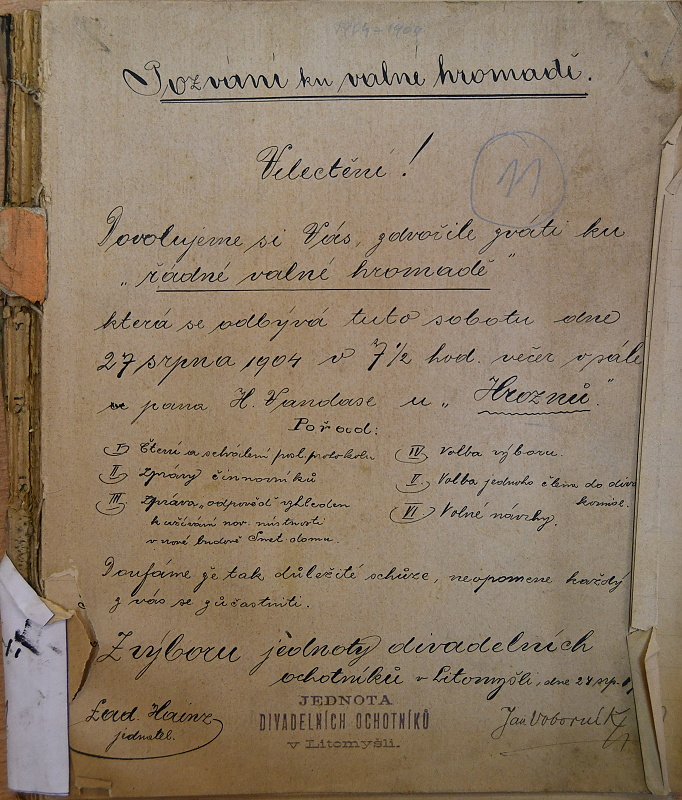 1904-1900
Pozvání ku valné hromadě.
Velectění!
11
Dovolujeme si Vás, zdvořile zváti ku
„řádné valné hromadě"
která se odbývá tuto sobotu dne
27 srpna 1904 v 7 1/2 hod. večer v sále
pana H. Vandase u „Hroznů."
Pořad:
I Čtení a schválení posl. protokolu
II Zprávy činnovníků
III Zpráva „odpověď" vzhledem
k užívání nov. místnosti
v nové budově Smet. domu.
IV Volba výboru.
V. Volba jednoho člena do diva
komise.
VI Volné návrhy.
Doufáme že tak důležité schůze, neopomene každý
z vás se zůčastniti.
Z výboru jednoty divadelních
ochotníků v Litomyšli, dne 24 srp.
Lad. Hainz
jednatel.
JEDNOTA
DIVADELNÍCH OCHOTNÍKŮ
v Litomyšli.
Jan Voborník